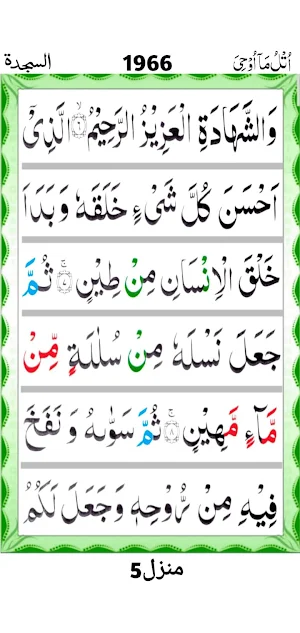 السجدة 1966 اُتْلُ مَاۤ اُوْحِیَ
وَالشَّهَادَةِ الْعَزِیْزُ الرَّحِیْمُ ۙ﴿۶﴾ الَّذِیْۤ
اَحْسَنَ كُلَّ شَیْءٍ خَلَقَهٗ وَ بَدَاَ
خَلْقَ الْاِنْسَانِ مِنْ طِیْنٍ ۚ﴿۷﴾ ثُمَّ
جَعَلَ نَسْلَهٗ مِنْ سُلٰلَةٍ مِّنْ
مَّآءٍ مَّهِیْنٍ ۚ﴿۸﴾ ثُمَّ سَوّٰىهُ وَ نَفَخَ
فِیْهِ مِنْ رُّوْحِهٖ وَجَعَلَ لَكُمُ
منزل5